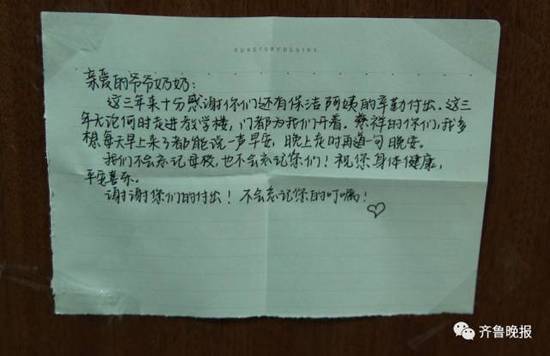 亲爱的爷爷奶奶：
这三年来十分感谢你们还有保洁阿姨的辛勤付出。这三
年无论何时走进教学楼，门都为我们开着。慈祥的你们，我多
想每天早上来了都能说一声早安，晚上走时再道一句晚安。
我们不会忘记母校，也不会忘记你们！祝您身体健康，
平安喜乐。
谢谢你们的付出！不会忘记您的叮嘱！
齐鲁晚报